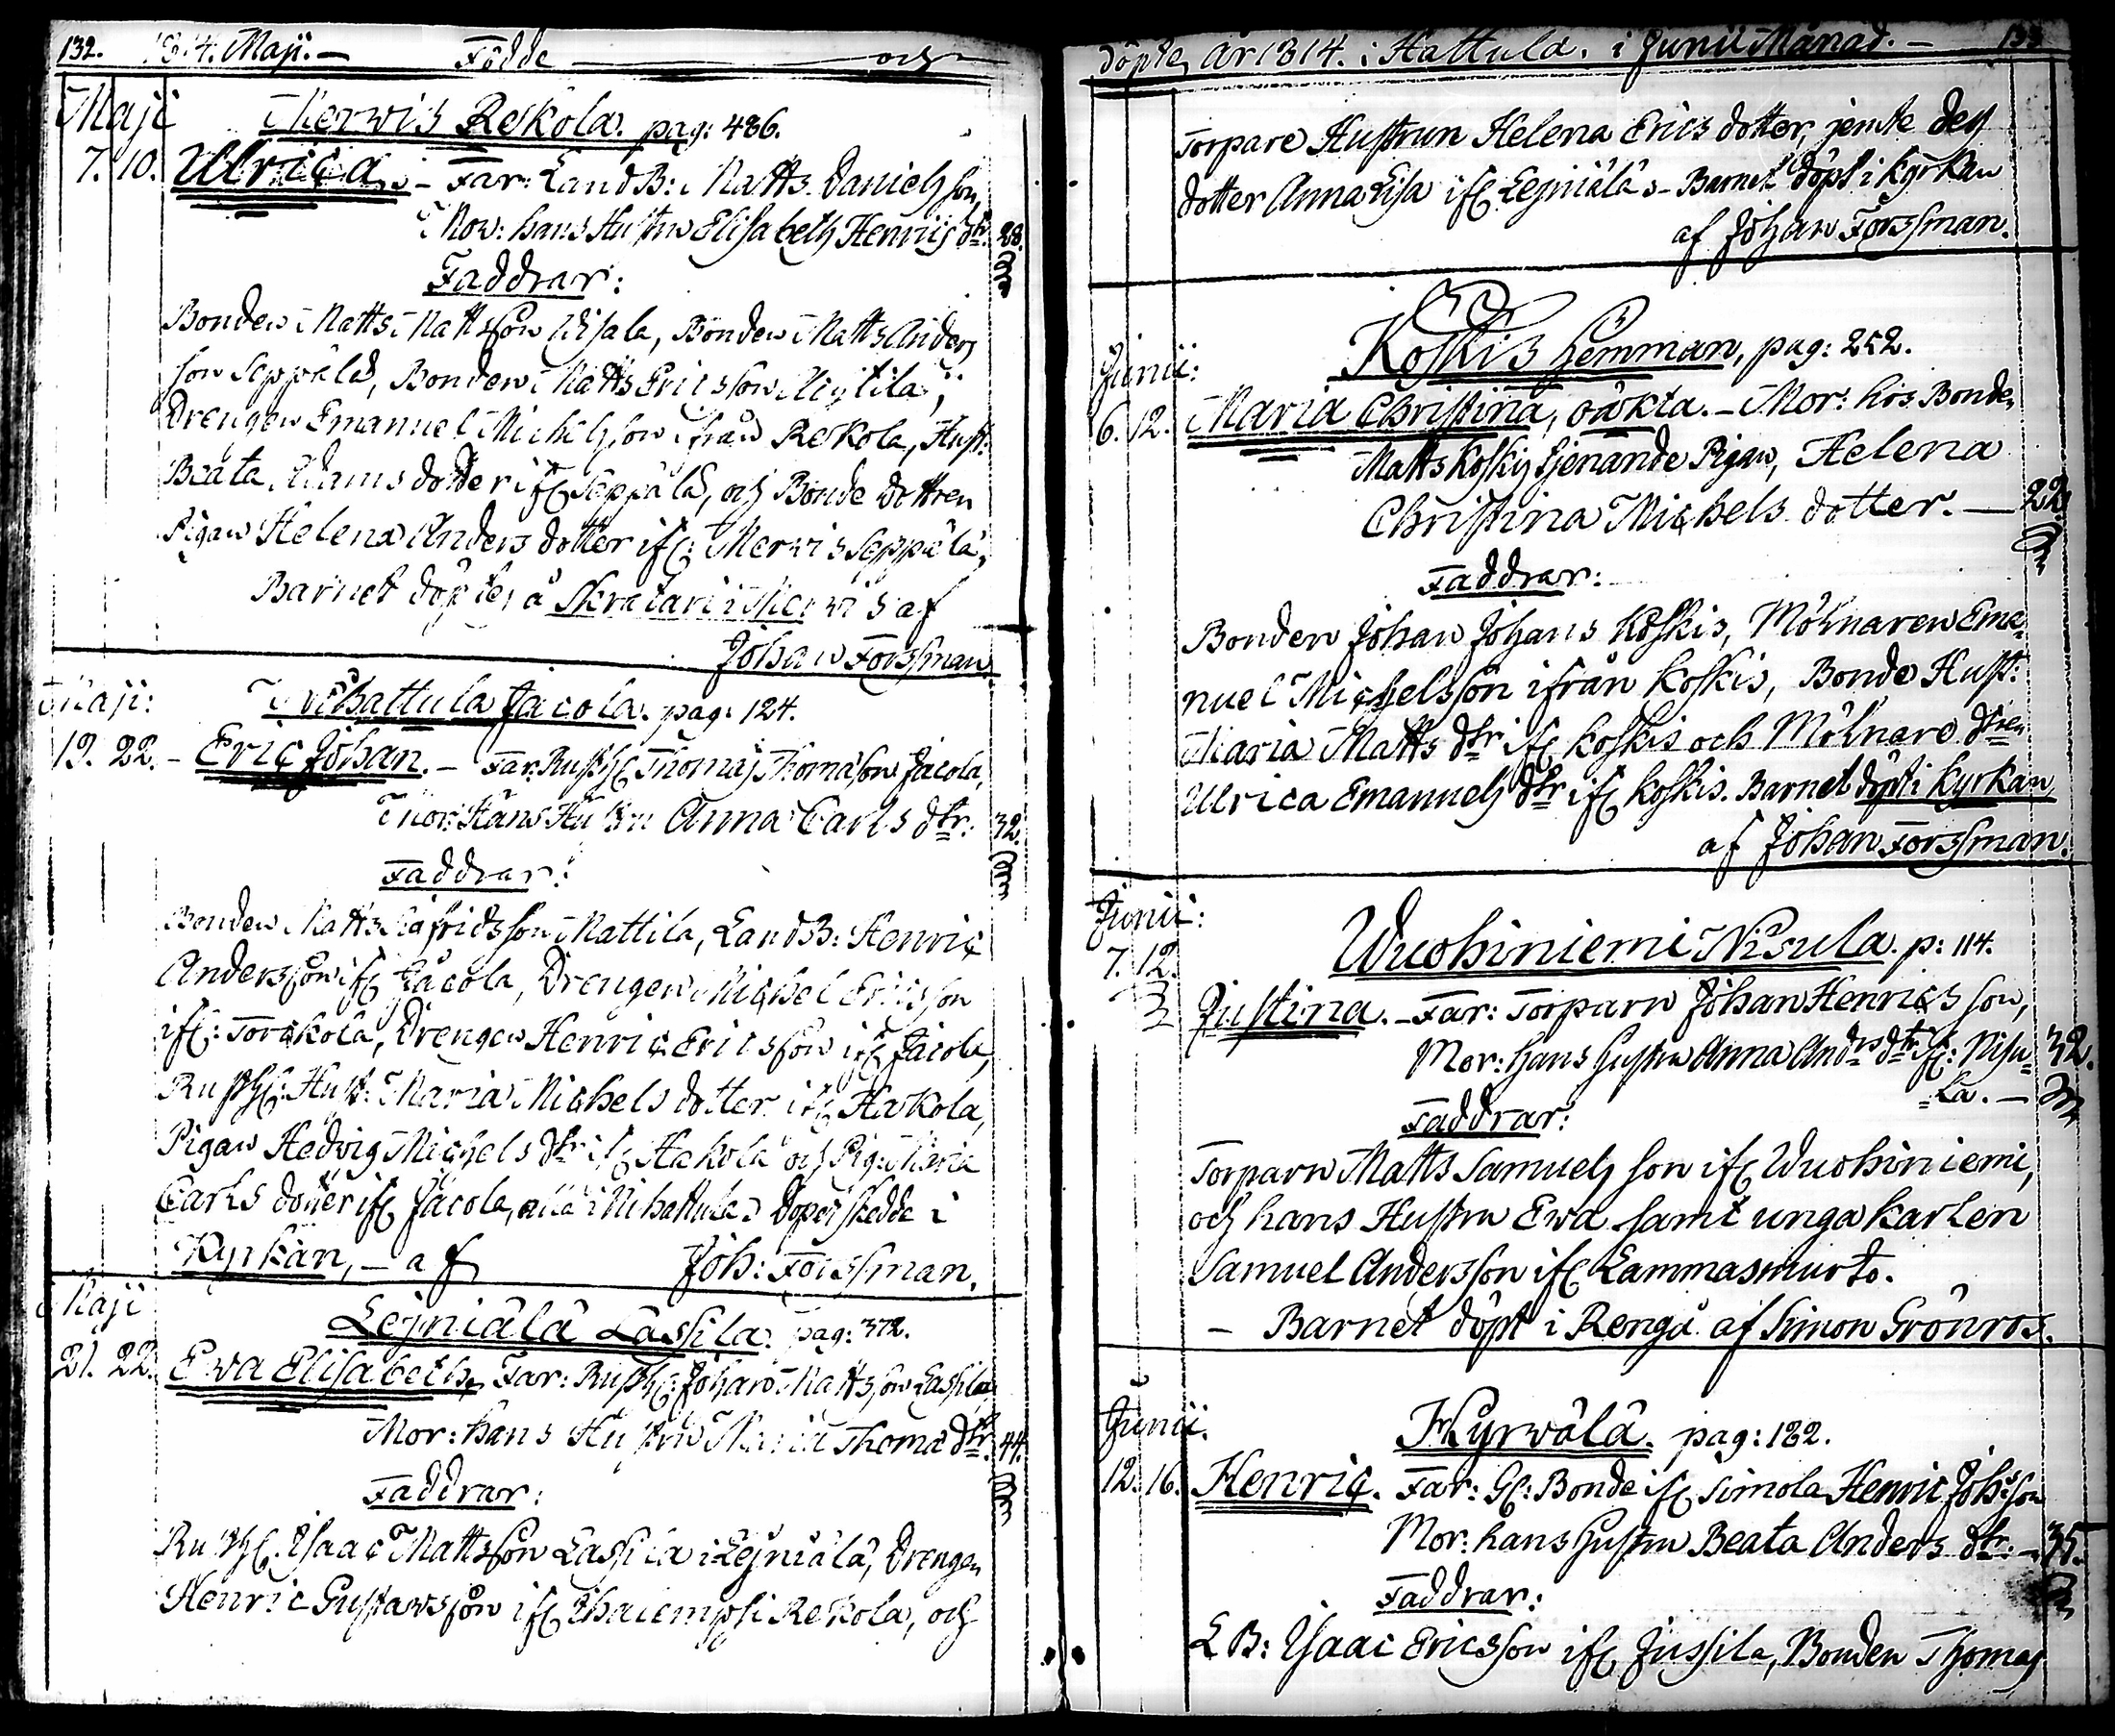 132. 1814. Maji. — Födde — och
Maji Merwis Rekola. pag: 486.
7. 10. Ulrica. – Far: LandB: Matts Danielsson,
Mor: hans Hustru Elisabeth Henrics dtr. 28.
Faddrar:
Bonden Matts Mattsson Uisala, Bonden Matts Anders
son Seppälä, Bonden Matts Ericsson
Drengen Emanuel Michelsson ifrån Rekola, Hust:
Beata Adams dotter ifr Seppälä, och Bonde dottren
Pigan Helena Anders dotter ifr: Merwis Seppälä,
Barnet döptes å i Merwis af
Johan Forssman.
Maji: Nihattula Jacola. pag: 124.
19. 22. – Eric Johan. – Far: Rusth Thomas Thomasson Jacola,
Mor: Hans Hustru Anna Carls dtr. 32.
Faddrar:
Bonden Matts Mattila, LandB: Henric
Andersson ifr Jacola, Drengen Michel Ericsson
ifr: Torckola, Drengen Henric Ericsson ifr Jacola,
Rusth: Hust: Maria Michels dotter ifr Hakola,
Pigan Hedvig Michels dtr ifr Hakola och Pig: Maria
Carls dotter ifr Jacola, alla i Nihattula. Dopet skedde i
Kyrkan, – af Joh: Forssman.
Maji Lejniälä Lassila. pag: 372.
21. 22. Ewa Elisabeth, Far: Rusth: Johan Mattsson Lassila,
Mor: hans Hustru Maria Thomæ dtr. 44.
Faddrar:
Rusth: Isaac Mattsson Lassila i Lejniälä, Drengen
Henric Gustavsson ifr Ihalempi Rekola, och
döpte, År 1814. i Hattula. i Junii Månad. – 133
Torpare Hustrun Helena Erics dotter, jemte dess
dotter Anna Lisa ifr Lejniälä – Barnet döpt i Kyrkan
af Johan Forssman.
Junii: Koskis Hemman, pag: 252.
6. 12. Maria Christina, oäkta. – Mor: hos Bonden
Matts Koskis tjenande Pigan, Helena
Christina Michels dotter. — 22.
Faddrar:
Bonden Johan Johans Koskis, Mölnaren Ema=
nuel Michelsson ifrån Koskis, Bonde Hust:
Maria Matts dtr ifr Koskis och Mölnare dtren
Ulrica Emanuels dtr ifr Koskis. Barnet döpt i Kyrkan,
af Johan Forssman.
Junii: Wuohiniemi Nisula. p: 114.
7. 12.
Justina. – Far: Torparn Johan Henrics son,
Mor: hans Hustru Anna Andrs dtr ifr: Nisu= 32.
=la. –
Faddrar:
Torparn Matts Samuels son ifr Wuohiniemi,
och hans Hustru Ewa samt unga karlen
Samuel Andersson ifr Lammasmurto.
– Barnet döpt i Rengå af Simon Grönros.
Junii. Hyrwälä. pag: 182.
12. 16. Henric. Far: Gl: Bonde ifr Simola Henric Johsson
Mor: hans Hustru Beata Anders dtr. – 35.
Faddrar:
LB: Isaac Ericsson ifr Jussila, Bonden Thomas